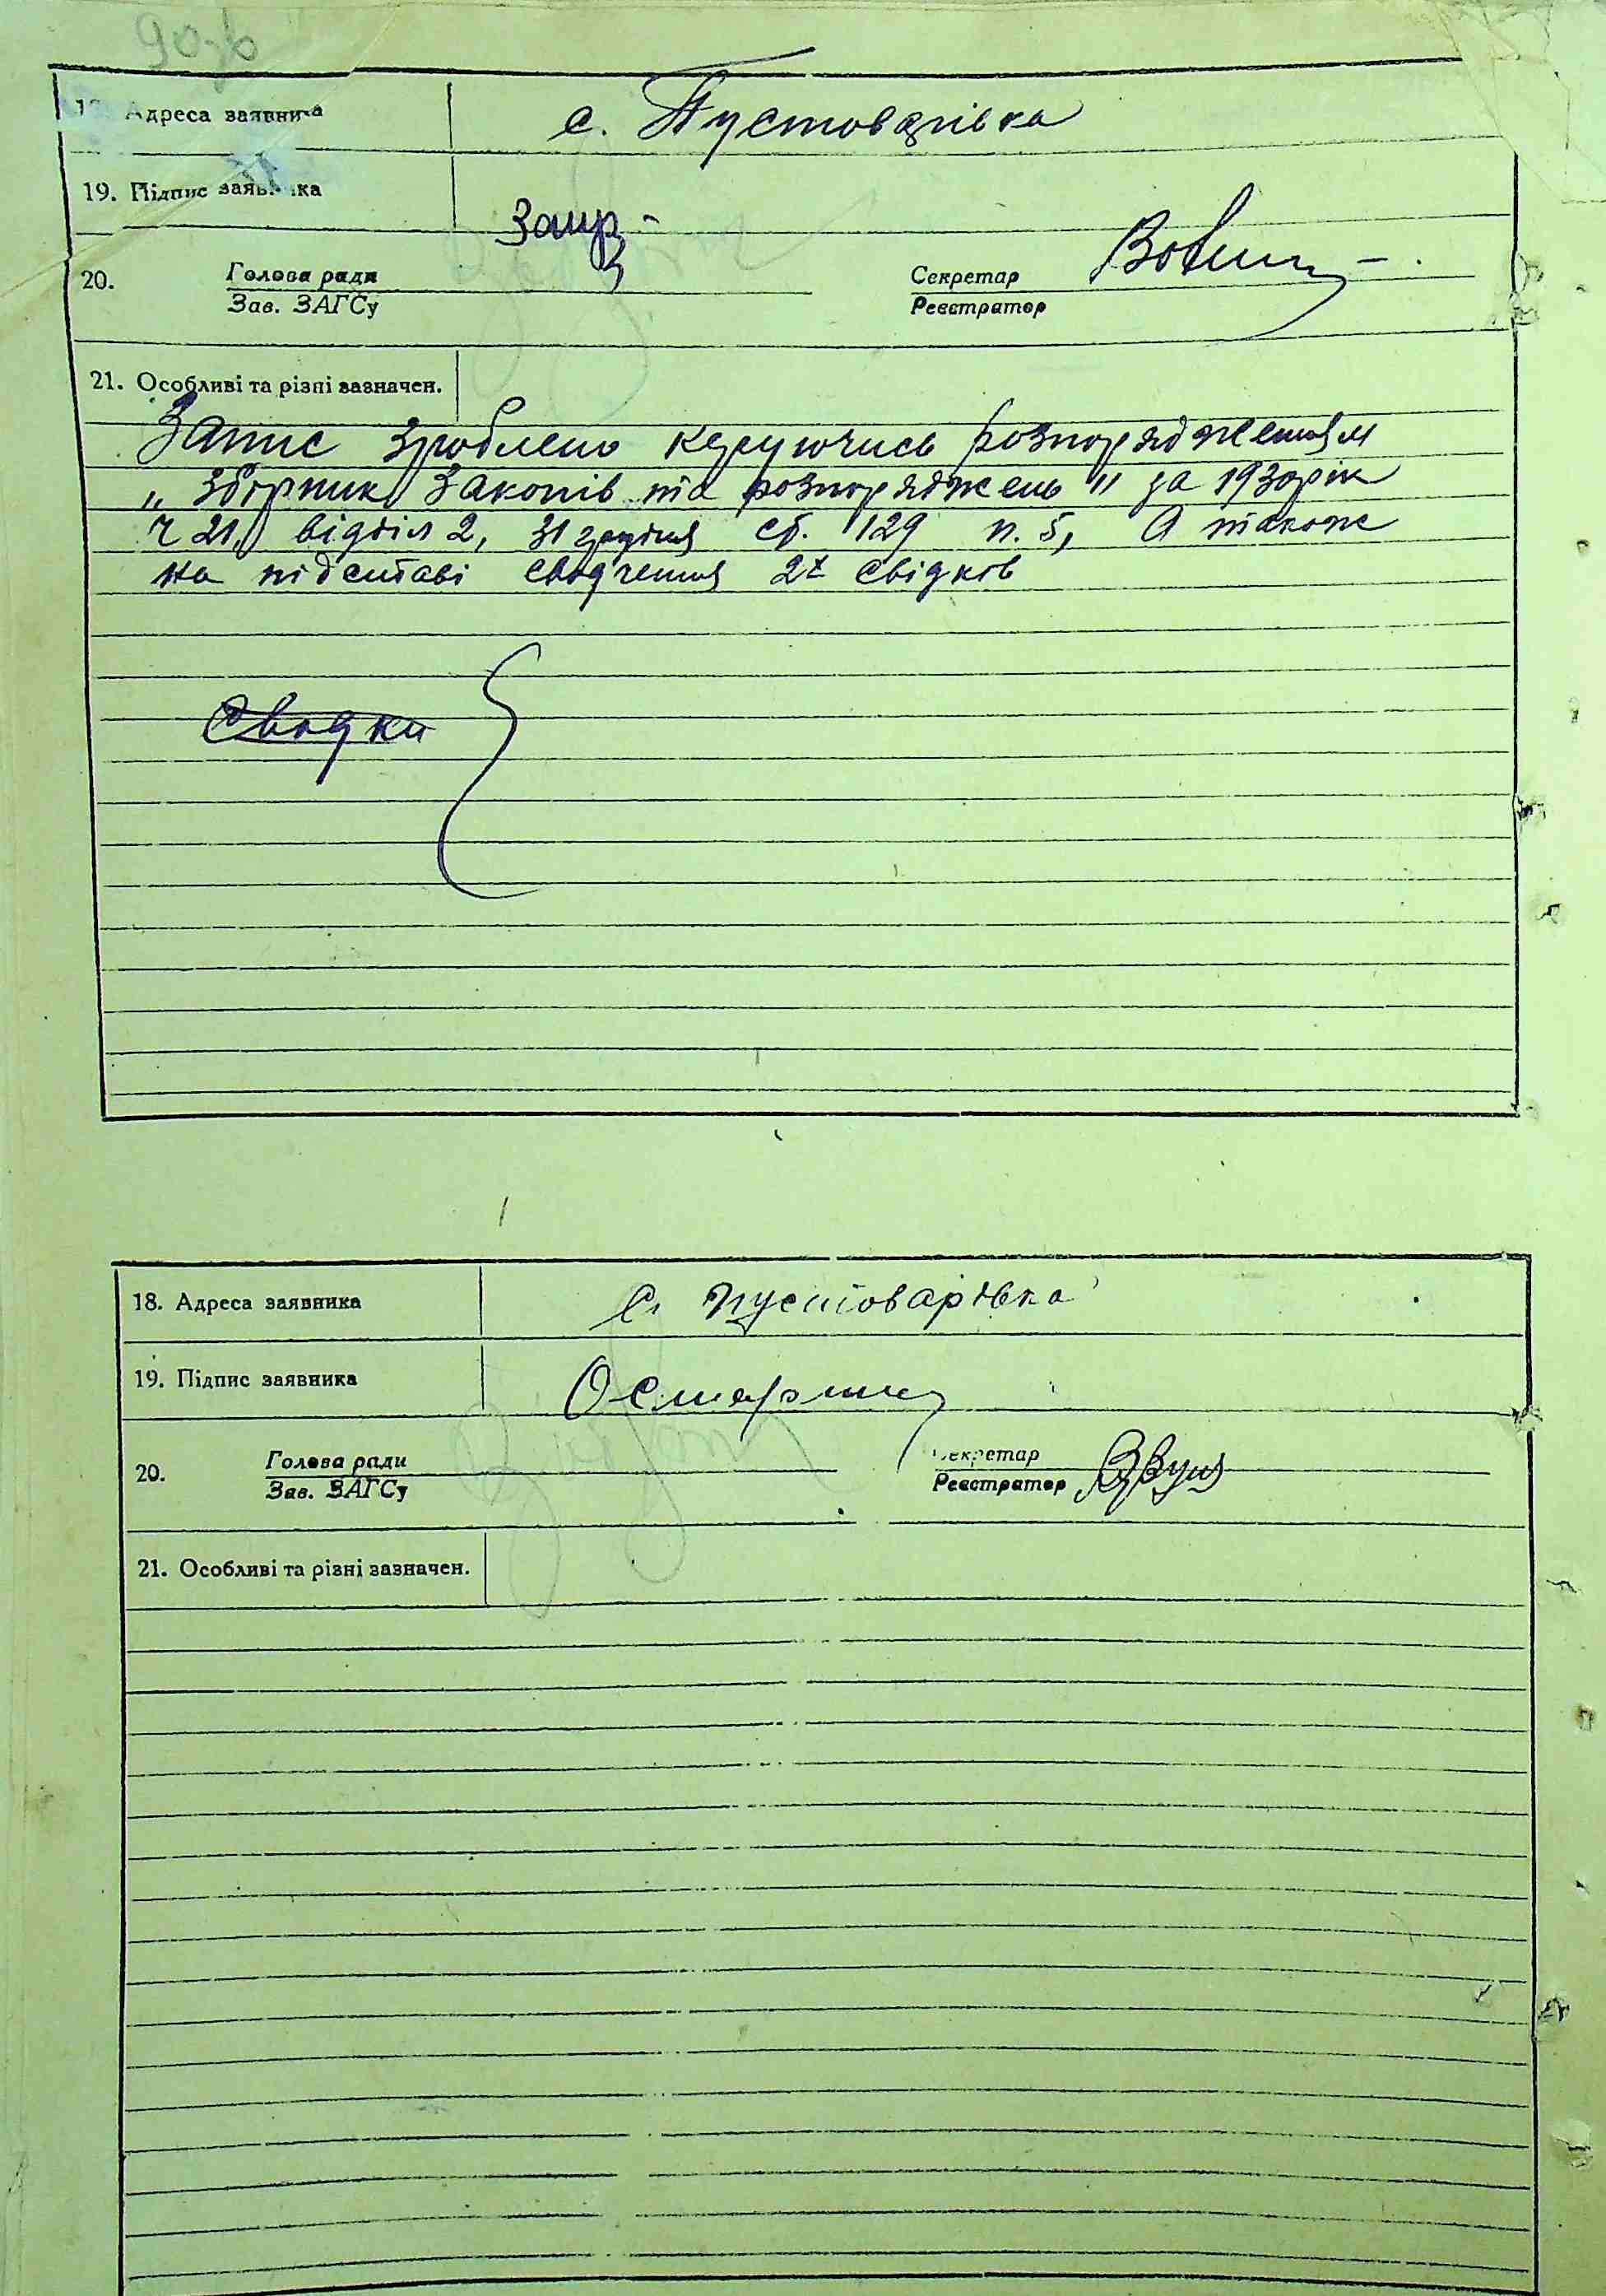 18. Адреса заявника
с. Пустоварівка
19. Підпис заявника
20.
Голова ради
Зав. ЗАГСу
Секретар
Реєстратор
21. Особливі та різні зазначен.
Запис зроблено керуючись розпорядженням
„Збірник законів та розпоряджень" за 193 рік
ч 21, відділ 2, 31 грудня ст. 129 п. 5, А також
на підставі свідчення 2х свідків
Свідки
18. Адреса заявника
с. Пустоварівка
19. Підпис заявника
20.
Голова ради
Зав. ЗАГСу
Секретар
Реєстратор
21. Особливі та різні зазначен.